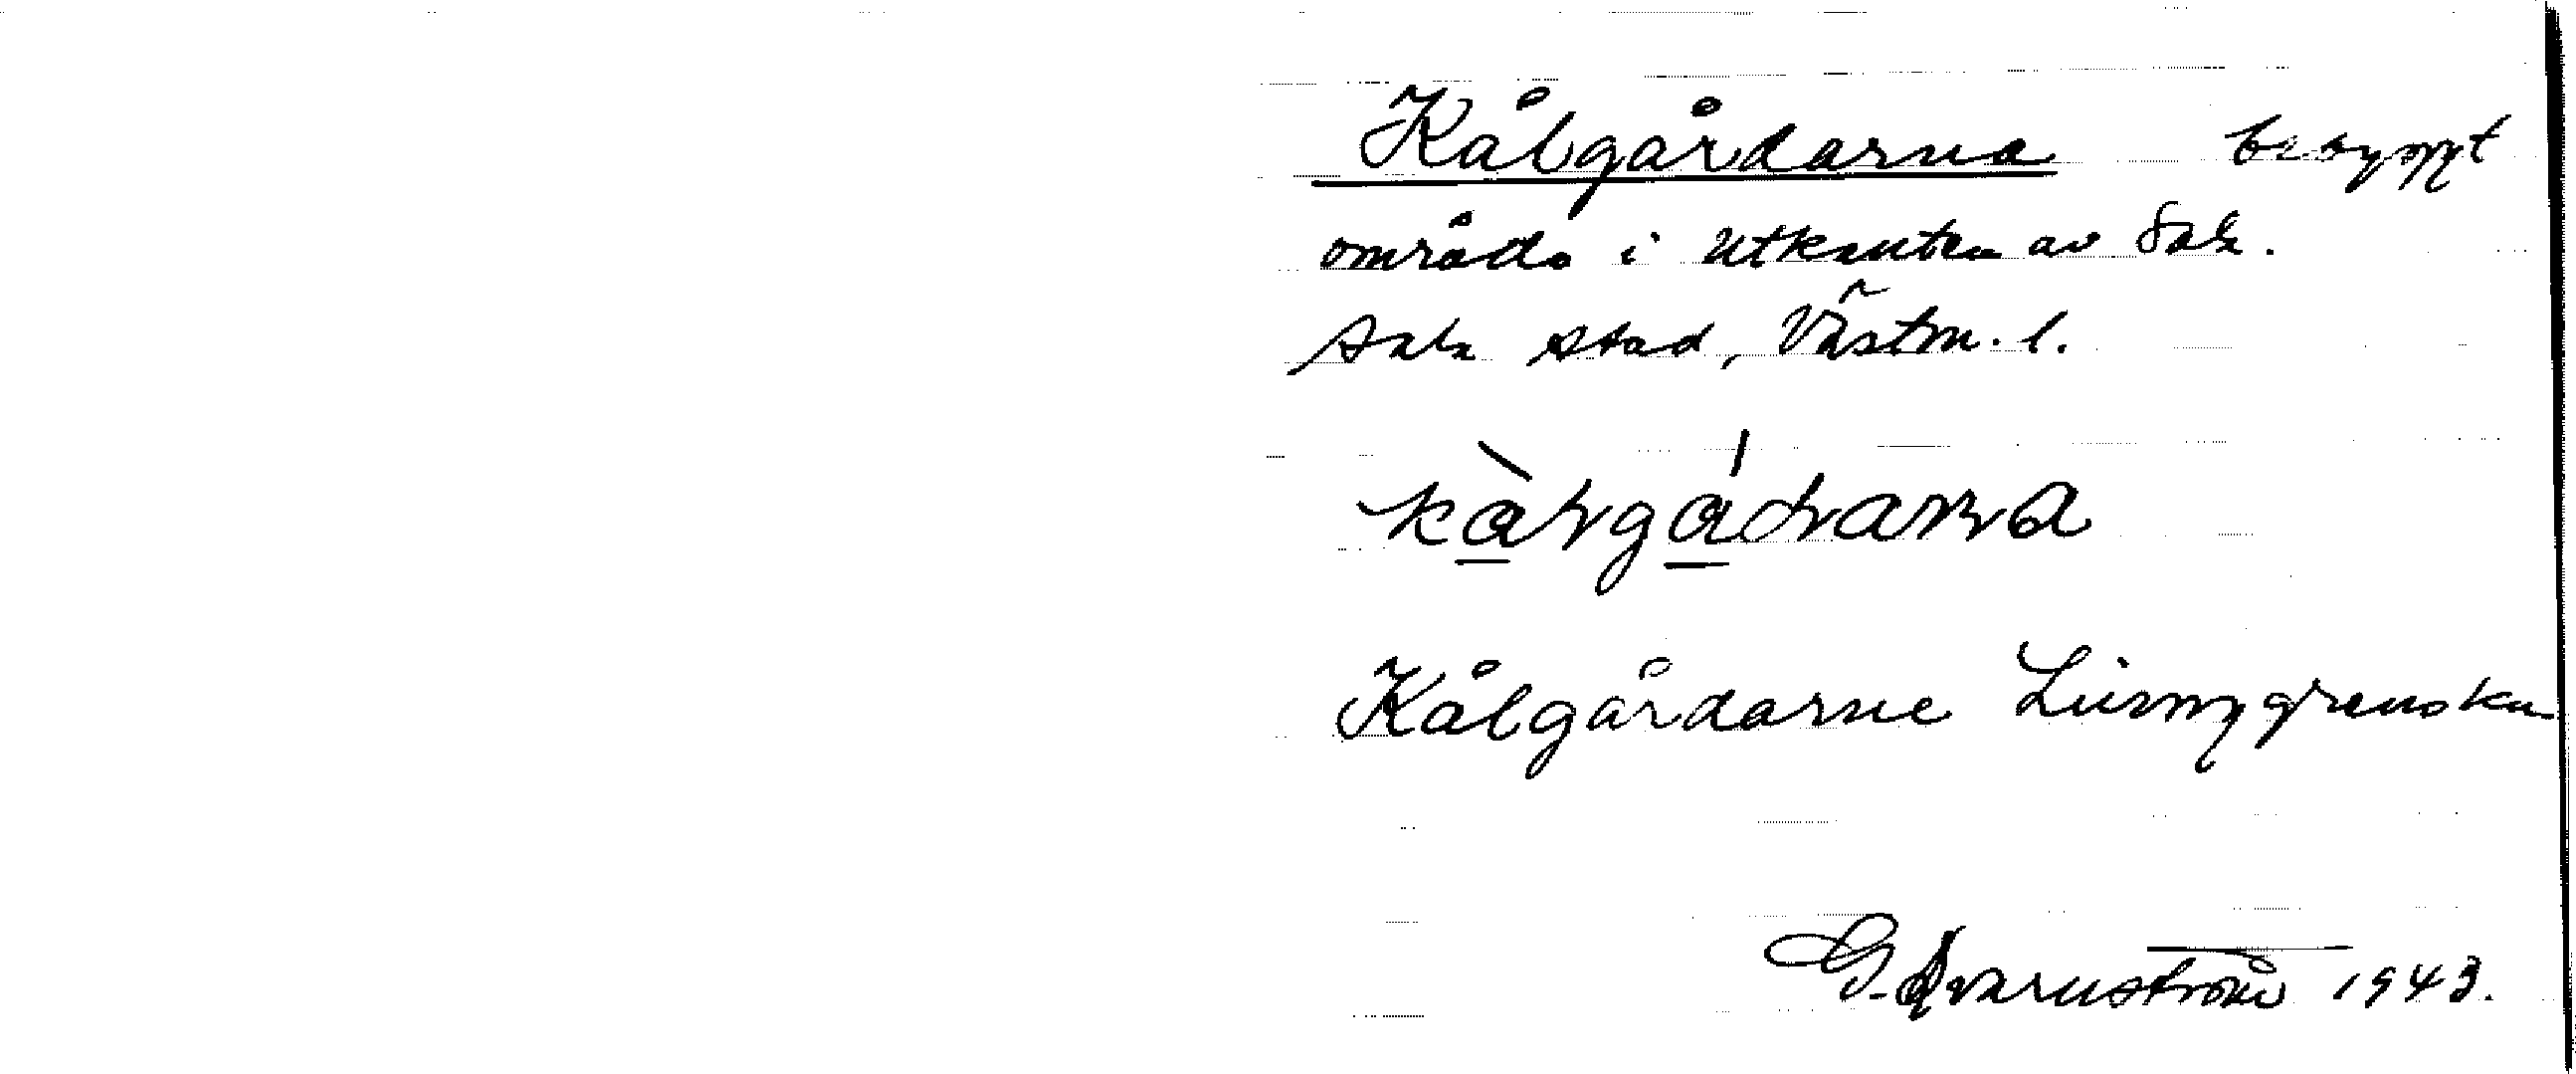 Kålgårdarna bebyggt
område i utkanten av Sala.
Sala stad, Västm. l.
Kålgårdarne Ljunggrenska
E. Kvarnström 1943.